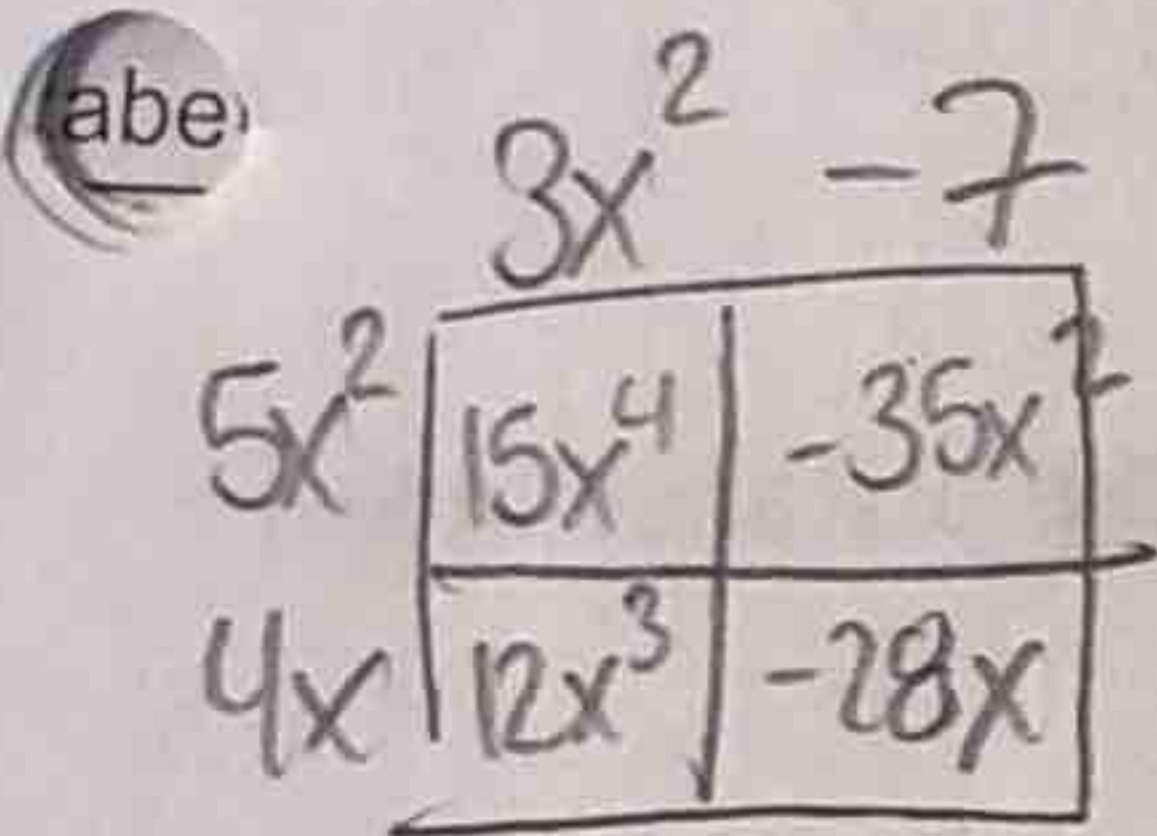 abe
3x² -7
5x² 15x⁴ -35x²
4x 12x³ -28x